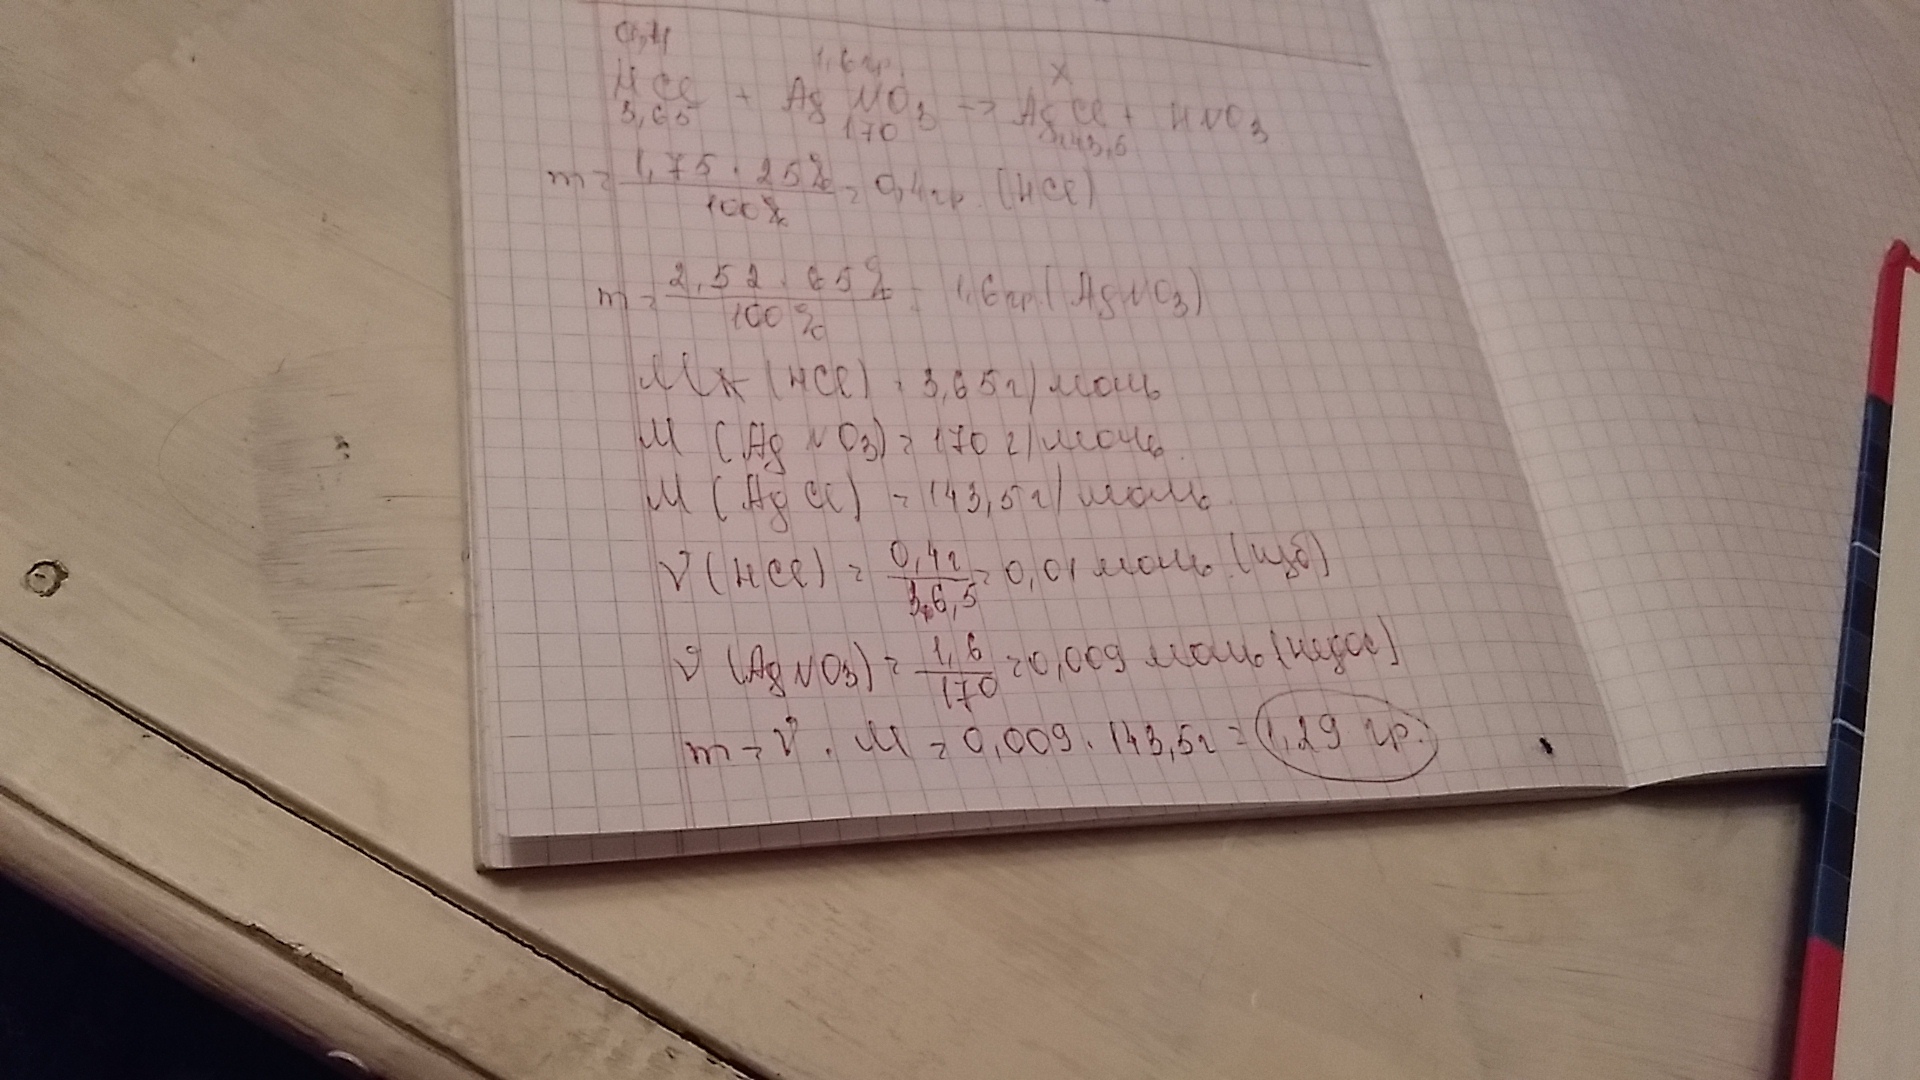 0,4 1,6 гр. x
HCl + AgNO3 -> AgCl + HNO3
3,65 170 143,5
m = 1,75 · 25% / 100% = 0,4 гр. (HCl)
m = 2,52 · 65% / 100% = 1,6 гр. (AgNO3)
(HCl) = 3,65 г/моль
M (AgNO3) = 170 г/моль.
M (AgCl) = 143,5 г/моль.
ν (HCl) = 0,4г / 36,5 = 0,01 моль. (изб)
ν (AgNO3) = 1,6 / 170 = 0,009 моль (недос)
m = ν · M = 0,009 · 143,5г = 1,29 гр.